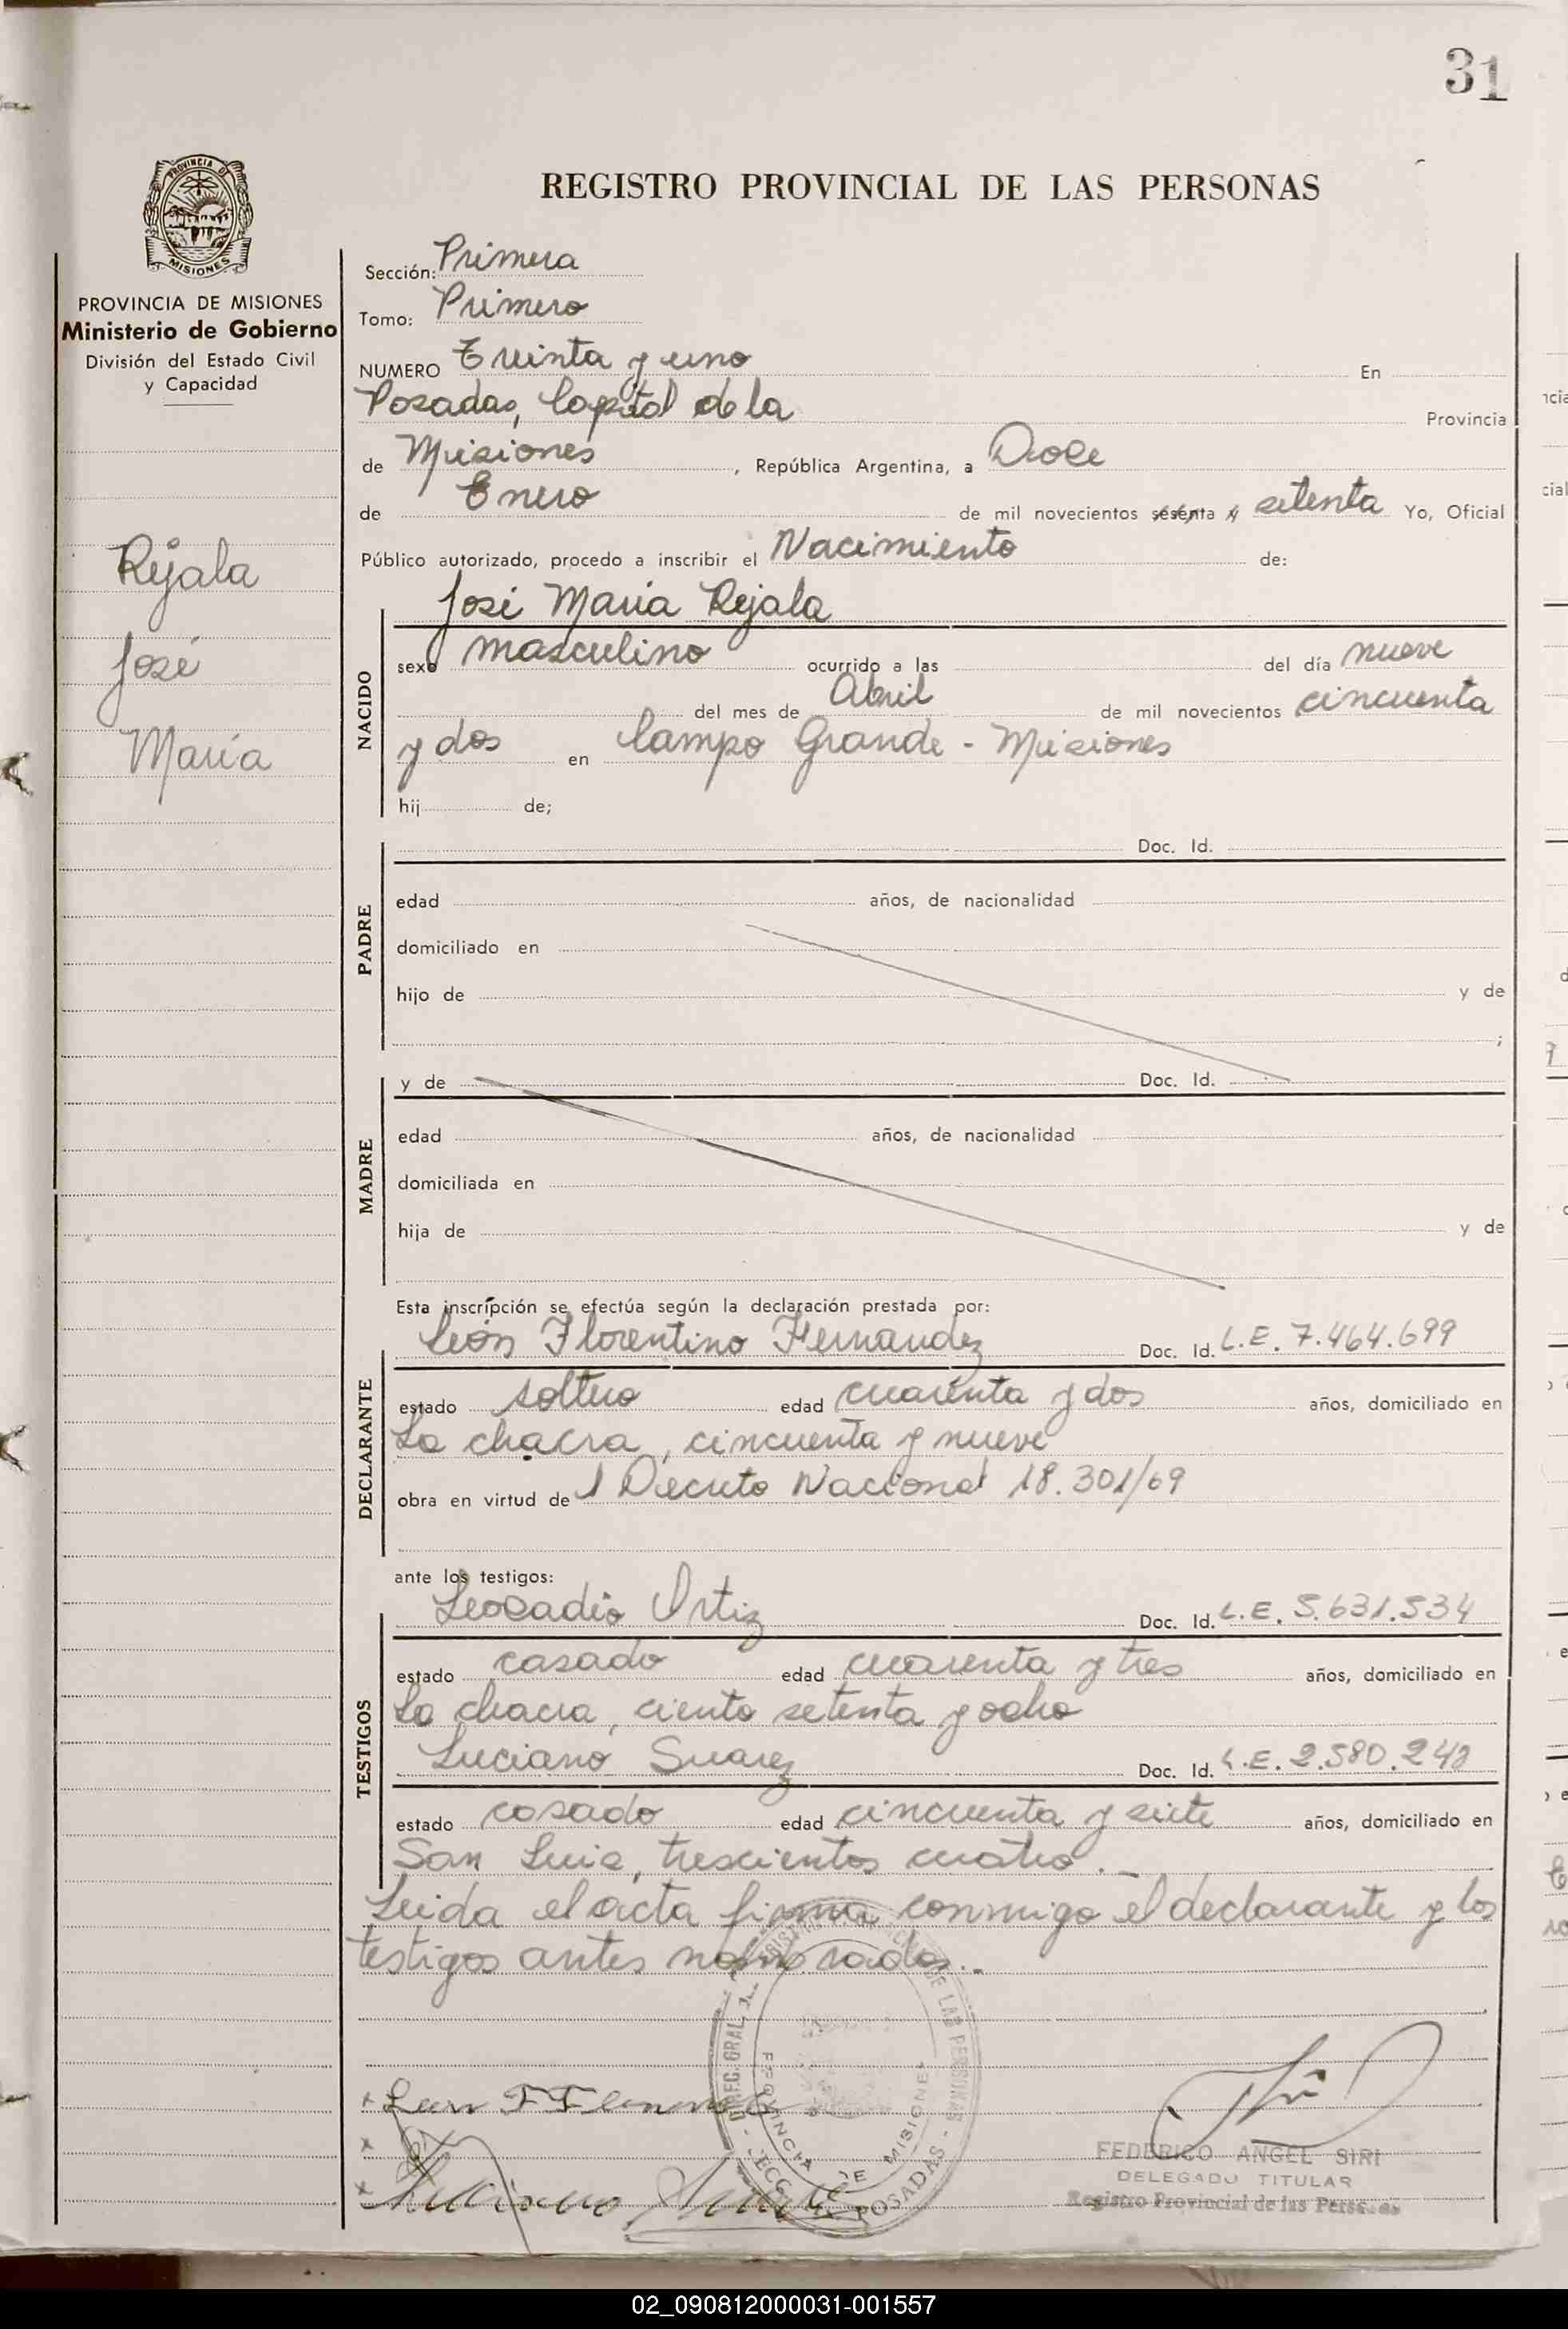 31
PROVINCIA DE
MISIONES
REGISTRO PROVINCIAL DE LAS PERSONAS
PROVINCIA DE MISIONES
Ministerio de Gobierno
División del Estado Civil
y Capacidad
Rejala
José
María
Sección: Primera
Tomo: Primero
NUMERO Treinta y uno En
Posadas, Capital de la Provincia
de Misiones, República Argentina, a Doce
de Enero de mil novecientos sesenta y setenta Yo, Oficial
Público autorizado, procedo a inscribir el Nacimiento de:
José María Rejala
NACIDO
sexo masculino ocurrido a las del día nueve
del mes de Abril de mil novecientos cincuenta
y dos en Campo Grande - Misiones
hij de;
PADRE
Doc. Id.
edad años, de nacionalidad
domiciliado en
hijo de y de
;
MADRE
y de Doc. Id.
edad años, de nacionalidad
domiciliada en
hija de y de
Esta inscripción se efectúa según la declaración prestada por:
León Florentino Fernandez Doc. Id. L.E. 7.464.699
DECLARANTE
estado soltero edad cuarenta y dos años, domiciliado en
La chacra, cincuenta y nueve
obra en virtud del Decreto Nacional 18.301/69
ante los testigos:
Leocadio Ortiz Doc. Id. L.E. 5.631.534
TESTIGOS
estado casado edad cuarenta y tres años, domiciliado en
La chacra, ciento setenta y ocho
Luciano Suarez Doc. Id. L.E. 2.580.242
estado casado edad cincuenta y siete años, domiciliado en
San Luis, trescientos cuatro.-
Leida el acta firma conmigo el declarante y los
testigos antes nombrados.-
DIREC. GRAL. DE LAS PERSONAS
PROVINCIA DE MISIONES
POSADAS
Luciano Suarez
FEDERICO ANGEL SIRI
DELEGADO TITULAR
Registro Provincial de las Personas
02_090812000031-001557